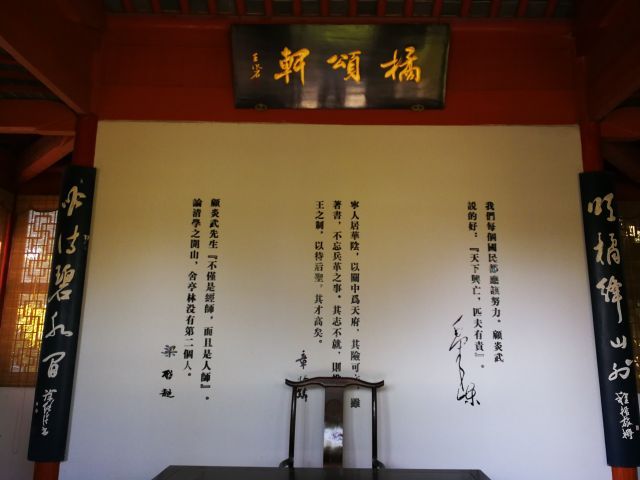 橘頌軒
頌橘絳山外
我們每個國民都應該努力。顧炎武
説的好：『天下興亡，匹夫有責』。
寧人居華陰，以關中爲天府，其險可　雖
著書，不忘兵革之事。其志不就，則
王之制，以待后聖，其才高矣。
章
顧炎武先生『不僅是經師，而且是人師』。
論清學之開山，舍亭林没有第二個人。
梁啓超
吟詩碧水間